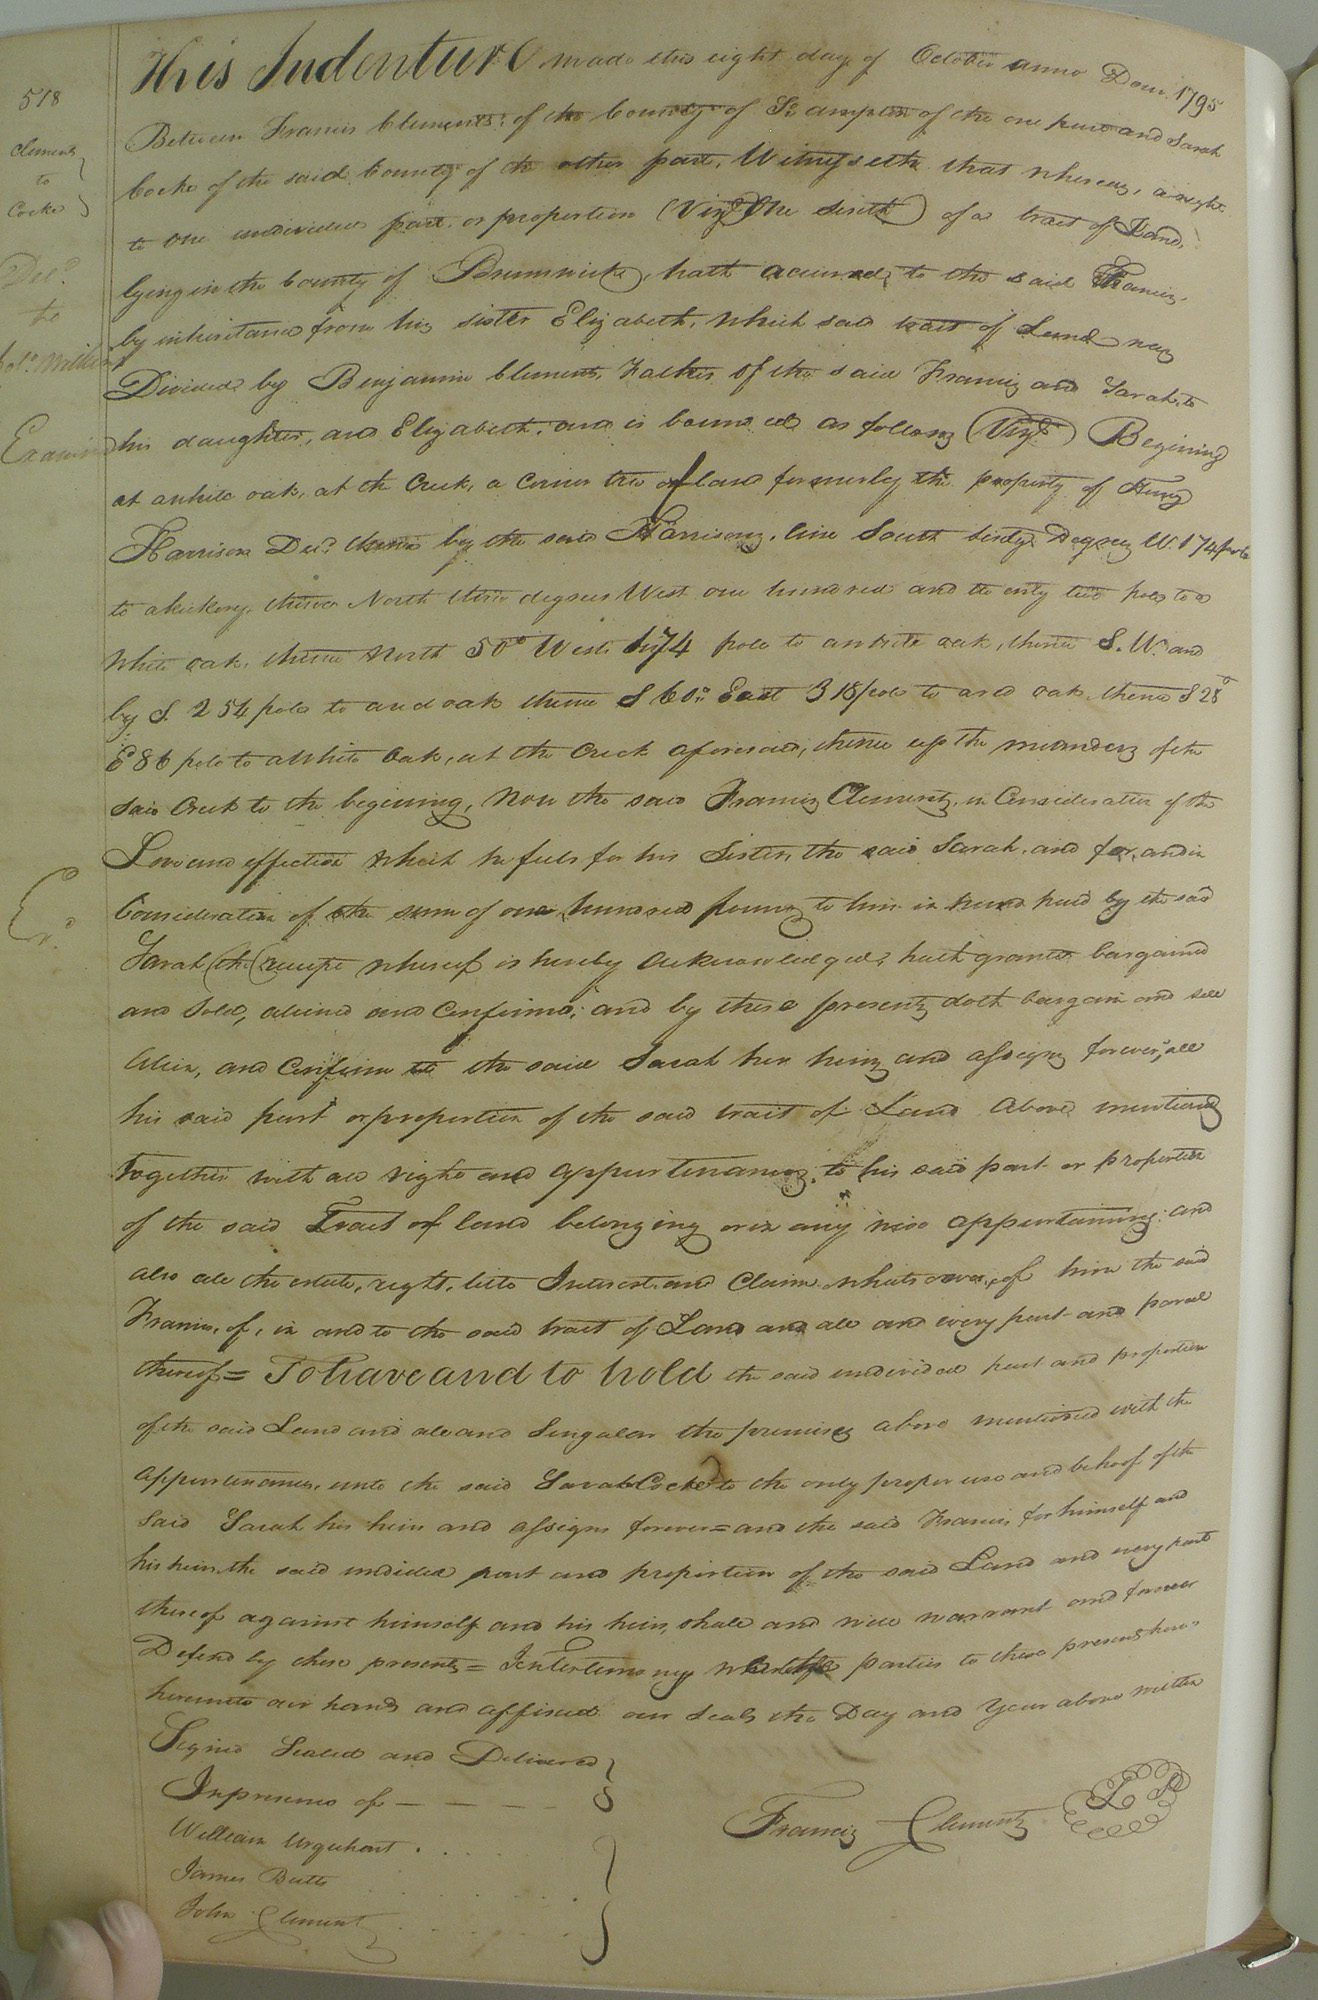 518
Clements
to
Cocke
Del.d
to
Examined
This Indenture made this eight day of October anno Dom. 1795
Between Francis Clements of the County of So. ampton of the one part and Sarah
Cocke of the said County of the other part, Witnesseth that whereas, a right
to one undivided part or proportion (Viz.t One sixth) of a tract of Land,
lying in the County of Brunswick, hath accrued, to the said Francis,
by inheritance from his sister Elizabeth, which said tract of Land was
Divided by Benjamin Clements, Father of the said Francis and Sarah, to
his daughter, and Elizabeth, and is bounded as follows (Viz.t) Begining
at a white oak, at the Creek, a corner tree of land formerly the property of Henry
Harrison Dec.d thence by the said Harrisons, line South sixty Degrees W. 174 pole
to a hickory, thence North three degrees West one hundred and twenty two poles to a
white oak, thence North 50° West 174 pole to a white oak, thence S. W. and
by S. 254 pole to a red oak thence S 60° East 318 pole to a red oak thence S 28°
E 86 pole to a White Oak, at the Creek aforesaid, thence up the meanders of the
said Creek to the begining, Now the said Francis Clements, in Consideration of the
Love and affection which he feels for his Sister, the said Sarah, and for, and in
Consideration of the sum of one hundred pounds to him in hand paid by the said
Sarah (the receipt whereof is hereby acknowledged, hath granted bargained
and Sold, aliened and Confirmed, and by these presents doth bargain and sell
Alien, and Confirm to the said Sarah her heirs and assigns forever, all
his said part or proportion of the said tract of Land Above mentioned
together with all rights and appurtenances, to his said part or proportion
of the said Tract of land belonging or in any wise appurtaining: and
also all the estate, right, title Interest and Claim whatsoever, of him the said
Francis, of, in and to the said tract of Land and all and every part and parcel
thereof = To have and to hold the said undivided part and proportion
of the said Land and all and Singular the premises above mentioned with the
appurtenances, unto the said Sarah Cocke to the only proper use and behoof of the
said Sarah his heirs and assigns forever = and the said Francis for himself and
his heirs, the said undided part and proportion of the said Land and every part
thereof against himself and his heirs, shall and will warrant and forever
Defend by these presents = In testimony whereof the parties to these presents have
hereunto our hands and affixed our Seals the Day and Year above written
Signed Sealed and Delivered
In presence of — — — —
William Urquhart . . . .
James Butts
John Clements
Francis Clements L S